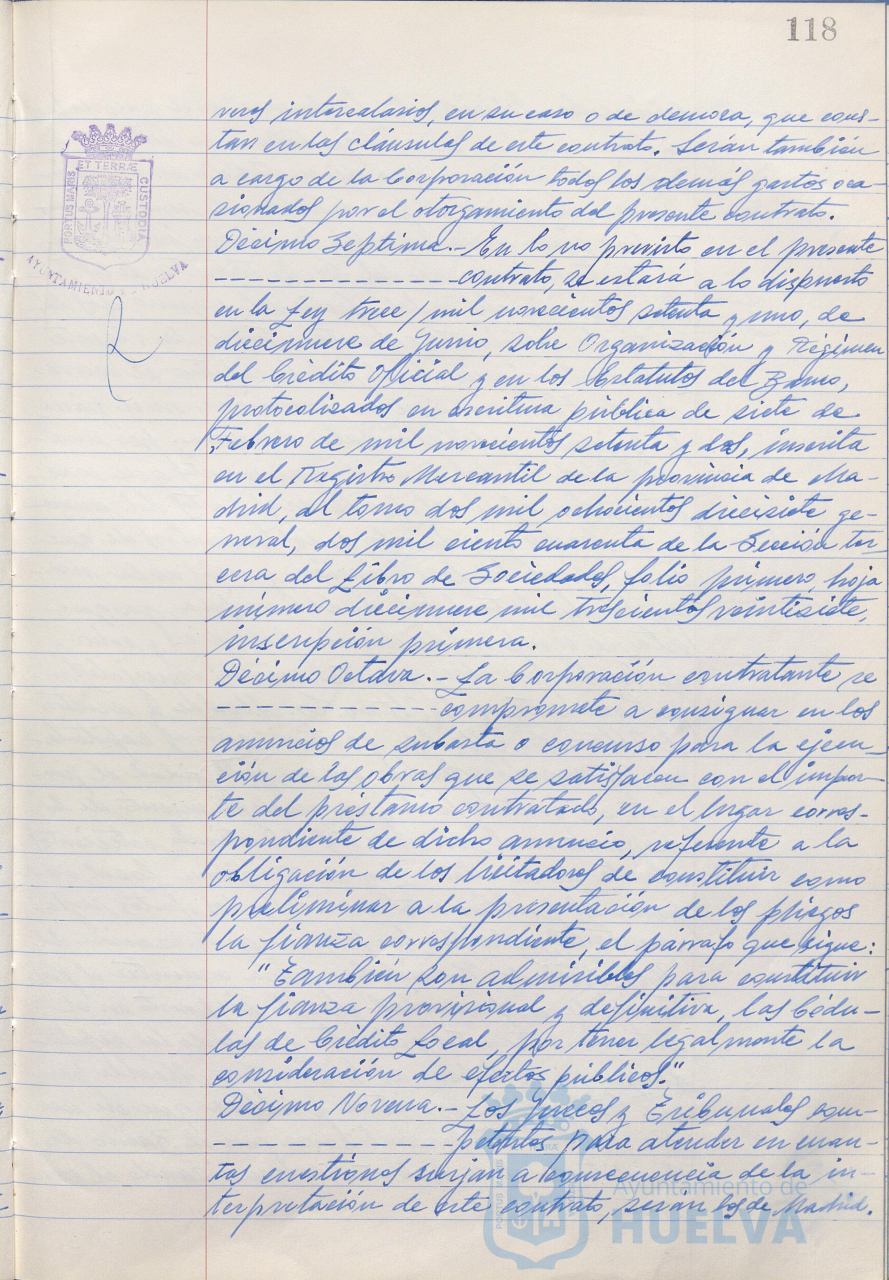 118
PORTUS MARIS
ET TERRÆ
CUSTODIA
AYUNTAMIENTO DE HUELVA
reses intercalarios, en su caso o de demora, que cons-
tan en las cláusulas de este contrato. Serán también
a cargo de la Corporación todos los demás gastos oca-
sionados por el otorgamiento del presente contrato.
Décimo Septima.- En lo no previsto en el presente
------------- contrato, se estará a lo dispuesto
en la Ley trece/mil novecientos setenta y uno, de
diecinueve de Junio, sobre Organización y Régimen
del Crédito Oficial y en los Estatutos del Banco,
protocolizados en escritura pública de siete de
Febrero de mil novecientos setenta y dos, inscrita
en el Registro Mercantil de la provincia de Ma-
drid, al tomo dos mil ochocientos diecisiete ge-
neral, dos mil ciento cuarenta de la Sección ter-
cera del Libro de Sociedades, folio primero, hoja
número diecinueve mil trescientos veintisiete,
inscripción primera.
Décimo Octava.- La Corporación contratante se
------------- compromete a consignar en los
anuncios de subasta o concurso para la ejecu-
ción de las obras que se satisfacen con el impor-
te del préstamo contratado, en el lugar corres-
pondiente de dicho anuncio, referente a la
obligación de los licitadores de constituir como
preliminar a la presentación de los pliegos
la fianza correspondiente, el párrafo que sigue:
"También son admisibles para constituir
la fianza provisional y definitiva, las Cédu-
las de Crédito Local, por tener legalmente la
consideración de efectos públicos."
Décimo Novena.- Los Jueces y Tribunales com-
------------- petentes para atender en cuan-
tas cuestiones surjan a consecuencia de la in-
terpretación de este contrato, serán los de Madrid.
Ayuntamiento de
HUELVA